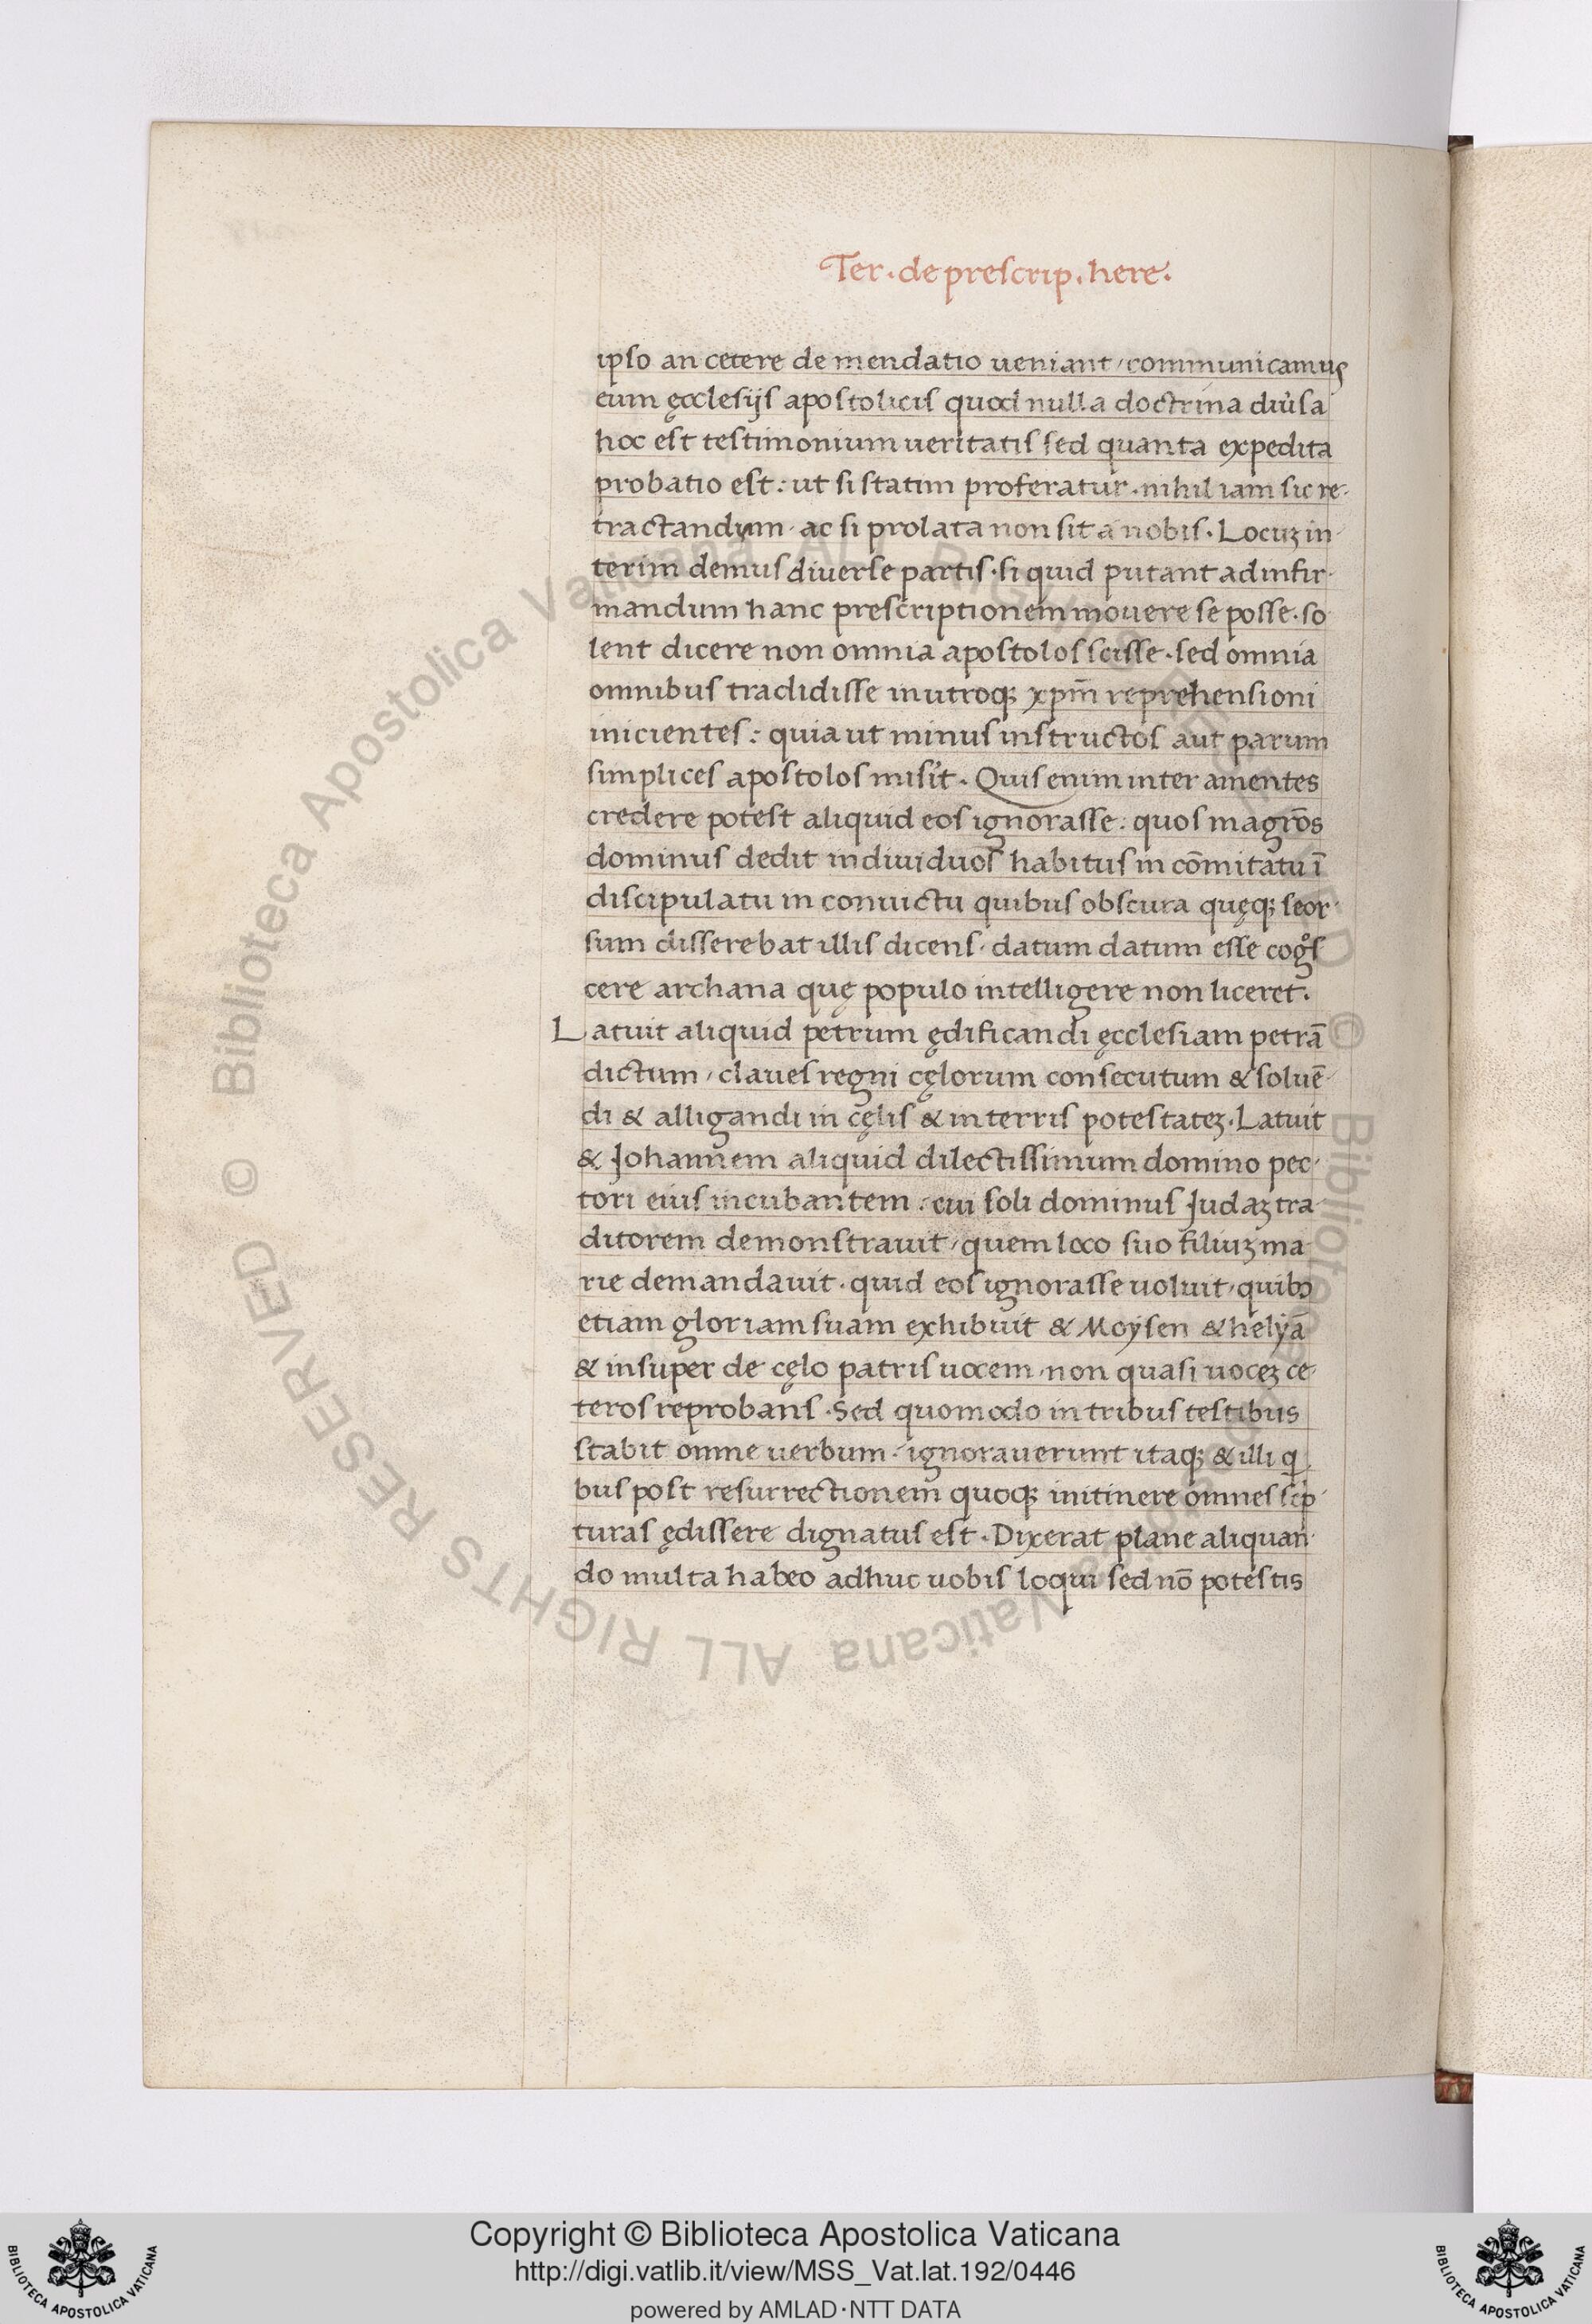 Ter. de prescrip. here.
ipso an cetere de mendatio ueniant, communicamus
eum ęcclesijs apostolicis quod nulla doctrina diu̓sa
hoc est testimonium ueritatis sed quanta expedita
probatio est: ut si statim proferatur. nihil iam sic re-
tractandum. ac si prolata non sit a nobis. Locuꝫ in-
terim demus diuerse partis. si quid putant ad infir-
mandum hanc prescriptionem mouere se posse. so
lent dicere non omnia apostolos scisse. sed omnia
omnibus tradidisse in utroqꝫ xpm̄ reprehensioni
inicientes: quia ut minus instructos aut parum
simplices apostolos misit. Quis enim inter amentes
credere potest aliquid eos ignorasse: quos magr̄os
dominus dedit individuos habitus in cōmitatu ī
discipulatu in conuictu quibus obscura quęqꝫ seor-
sum disserebat illis dicens. datum datum esse cogͦs
cere archana quę populo intelligere non liceret.
Latuit aliquid petrum ędificandi ęcclesiam petrā
dictum, claues regni cęlorum consecutum & soluē-
di & alligandi in cęlis & in terris potestateꝫ. Latuit
& Johannem aliquid dilectissimum domino pec-
tori eius incubantem. cui soli dominus Judaꝫ tra-
ditorem demonstrauit, quem loco suo filiuꝫ ma-
rie demandauit. quid eos ignorasse uoluit, quibꝫ
etiam gloriam suam exhibuit & Moysen & helyā
& insuper de cęlo patris uocem. non quasi uoceꝫ ce-
teros reprobans. Sed quomodo in tribus testibus
stabit omne uerbum. ignorauerunt itaqꝫ & illi q
bus post resurrectionem quoqꝫ initinere omnes scp̄-
turas ędissere dignatus est. Dixerat plane aliquan-
do multa habeo adhuc uobis loqui sed nō potestis
Copyright © Biblioteca Apostolica Vaticana
http://digi.vatlib.it/view/MSS_Vat.lat.192/0446
powered by AMLAD·NTT DATA
BIBLIOTECA APOSTOLICA VATICANA
BIBLIOTECA APOSTOLICA VATICANA